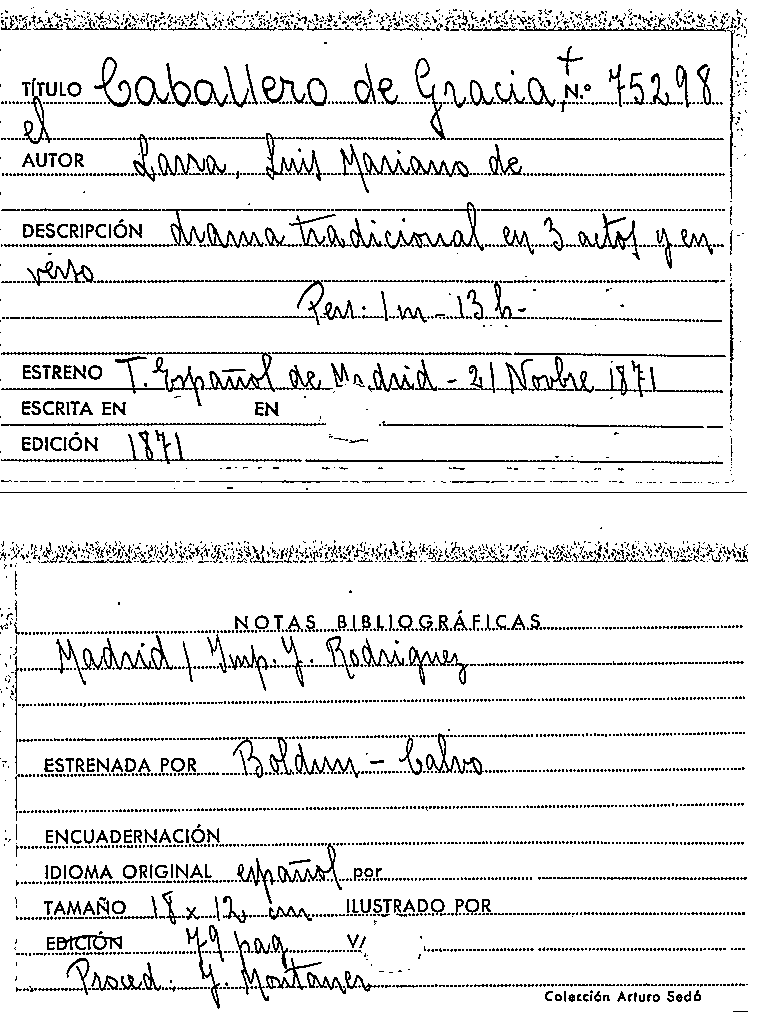 TÍTULO Caballero de Gracia, N.º 75298
el
AUTOR Larra, Luis Mariano de
DESCRIPCIÓN drama tradicional en 3 actos y en
verso
Pers: 1 m - 13 h-
ESTRENO T. Español de Madrid - 21 Novbre 1871
ESCRITA EN EN
EDICIÓN 1871
NOTAS BIBLIOGRÁFICAS
Madrid / Imp. J. Rodriguez
ESTRENADA POR Boldun - Calvo
ENCUADERNACIÓN
IDIOMA ORIGINAL español por
TAMAÑO 18 x 12 cm ILUSTRADO POR
EDICIÓN 79 pag V/
Proced: J. Montaner
Colección Arturo Sedó